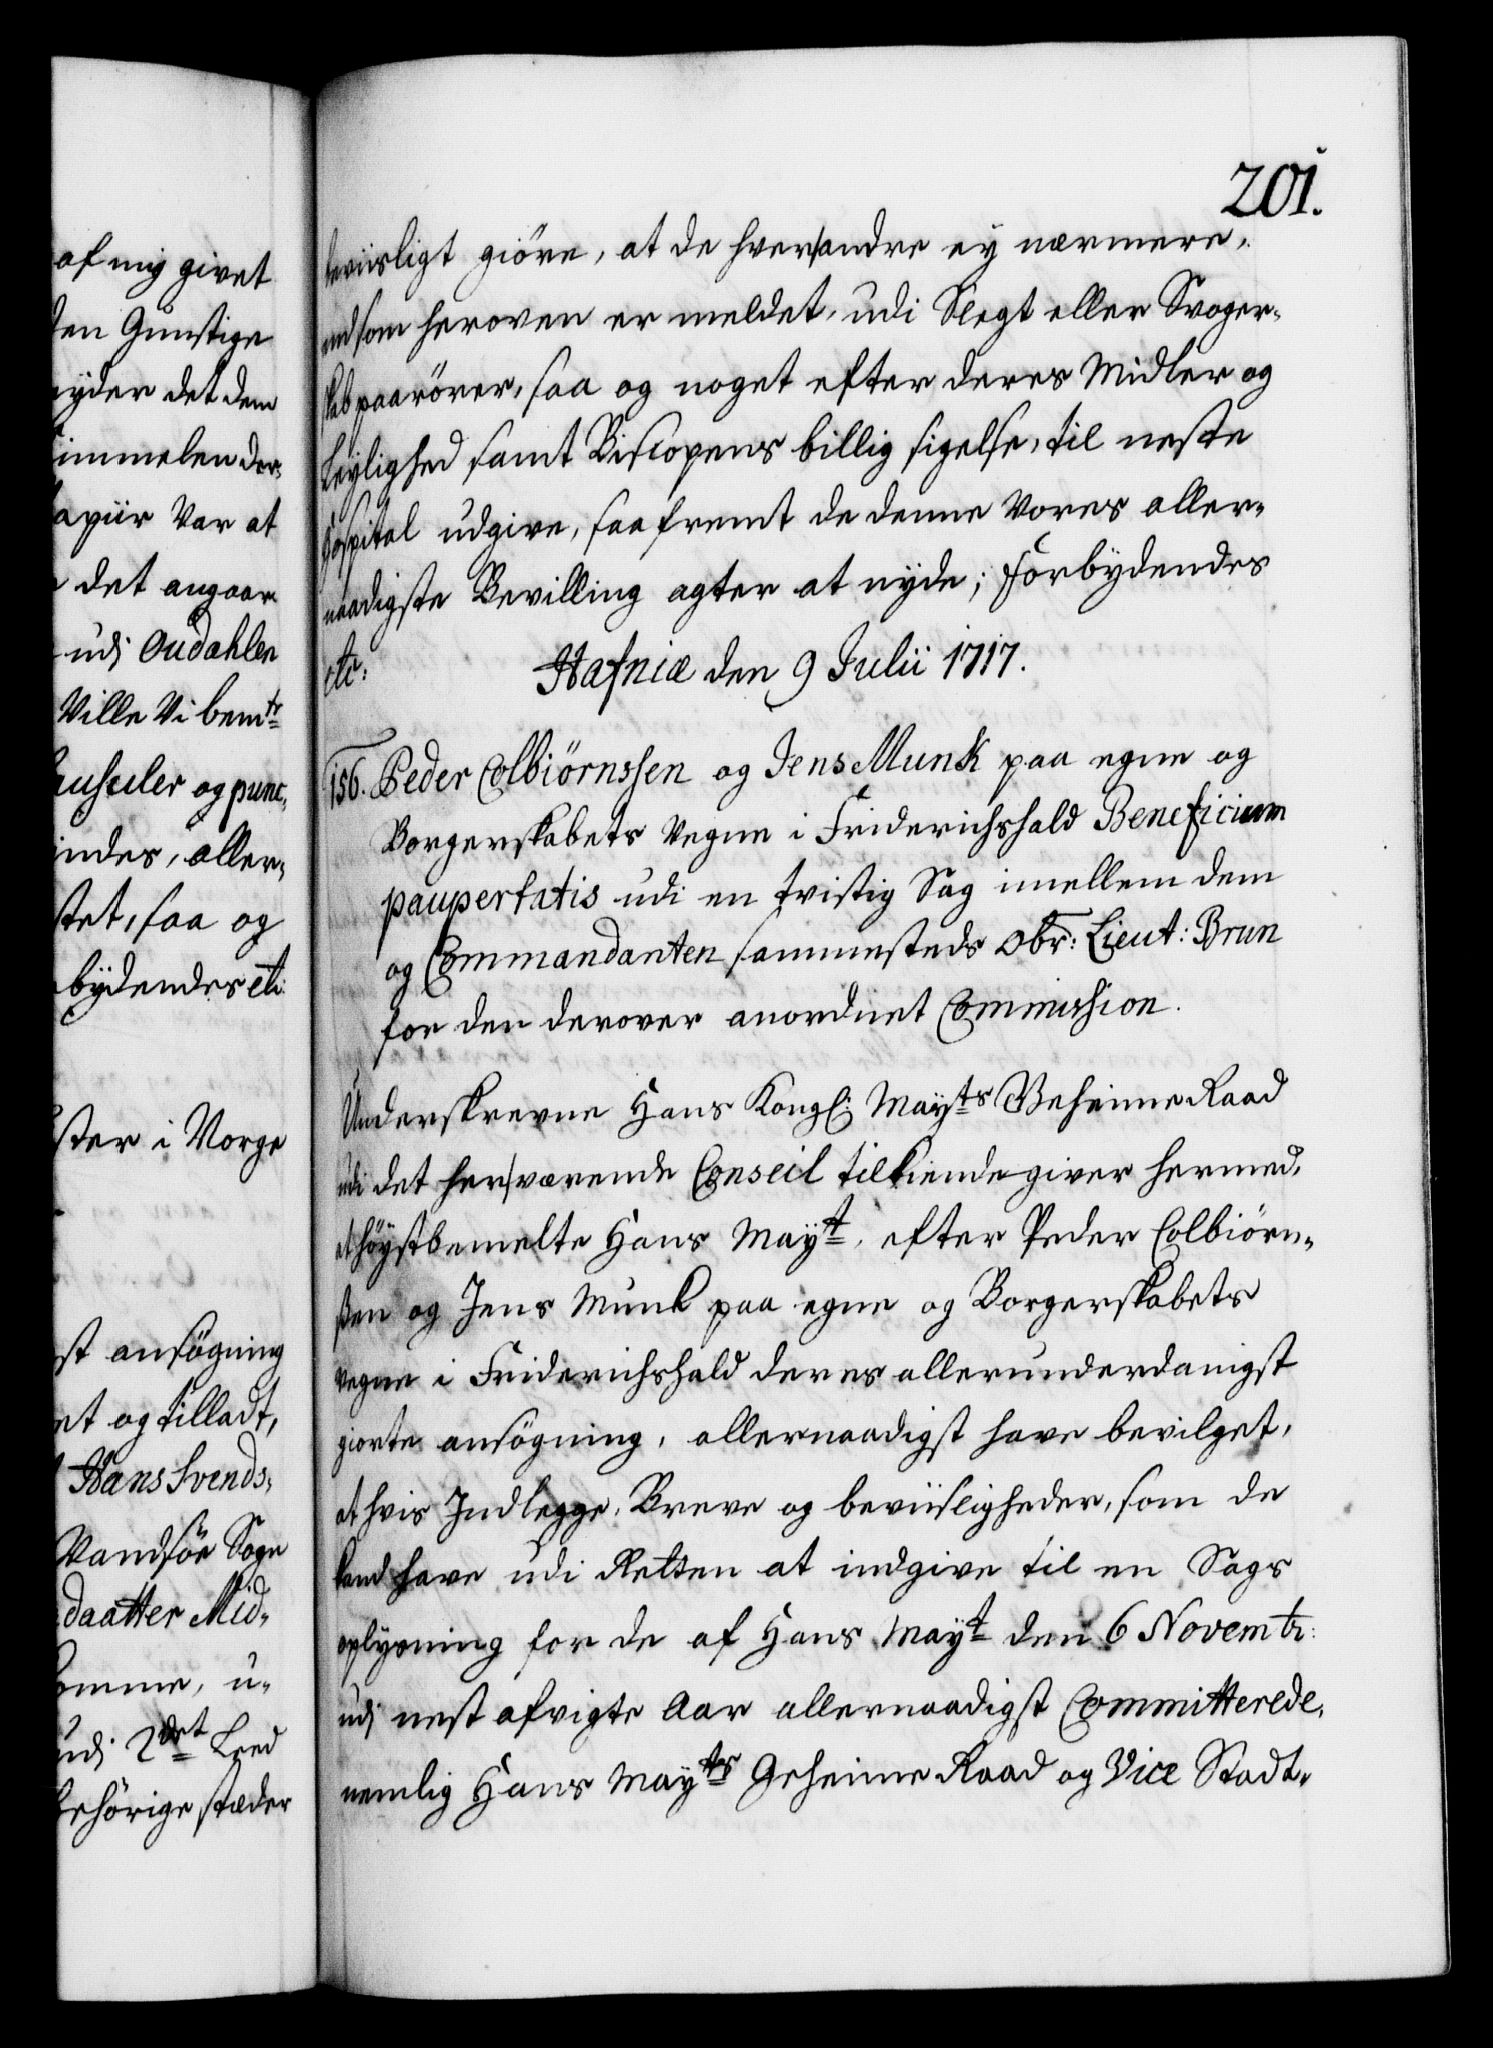 af mig givet
den Gunstige
nyder det dem
himmelen der¬
Papiir var at
det angaar
udj Oudahlen
Ville Vi bemte
Clausuler og punc¬
indes, aller¬
tet, saa og
bydendes etc:
ster i Norge
st ansøgning
et og tilladt,
Hans Svends¬
Vandsøe Sogn
daatter Mid¬
komme, u¬
udj 2det Leed
behörige stæder
201.
beviisligt giöre, at de hverandre ey nærmere,
end som heroven er meldet, udi Slegt eller Svoger¬
skab paarörer, saa og noget efter deres Midler og
Leylighed samt Biscopens billig sigelse, til neste
Hospital udgive, saafremt de denne Vores aller¬
naadigste Bevilling agter at nyde; Forbydendes
etc: Hafniæ den 9 Julii 1717.
156. Peder Colbiörnssen og Jens Munk paa egne og
Borgerskabets Vegne i Friderichshald Beneficium
paupertatis udi en tvistig Sag imellem dem
og Commandanten sammesteds Obr: Lieut: Brun
for den derover anordnet Commission.
Underskrevne Hans Kongl: Mayts Geheime Raad
udi det herværende Conseil tilkiendegiver hermed,
at höystbemelte Hans Mayt, efter Peder Colbiörn¬
ßen og Jens Munk paa egne og Borgerskabets
vegne i Friderichshald deres allerunderdanigst
giorte ansögning, allernaadigst have bevilget,
at hvis Indlegge, Breve og beviisligheder, som de
kand have udi Retten at indgive til en Sags
oplysning for de af Hans Mayt den 6 Novembr:
udj nest afvigte Aar allernaadigst Committerede,
nemlig Hans Mayts Geheime Raad og Vice Stadt¬